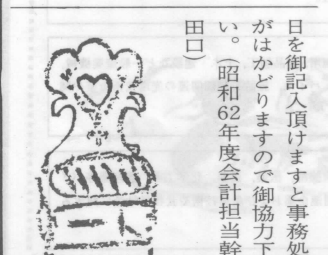 日を御記入頂けますと事務処
がはかどりますので御協力下
い。(昭和62年度会計担当幹
田口)